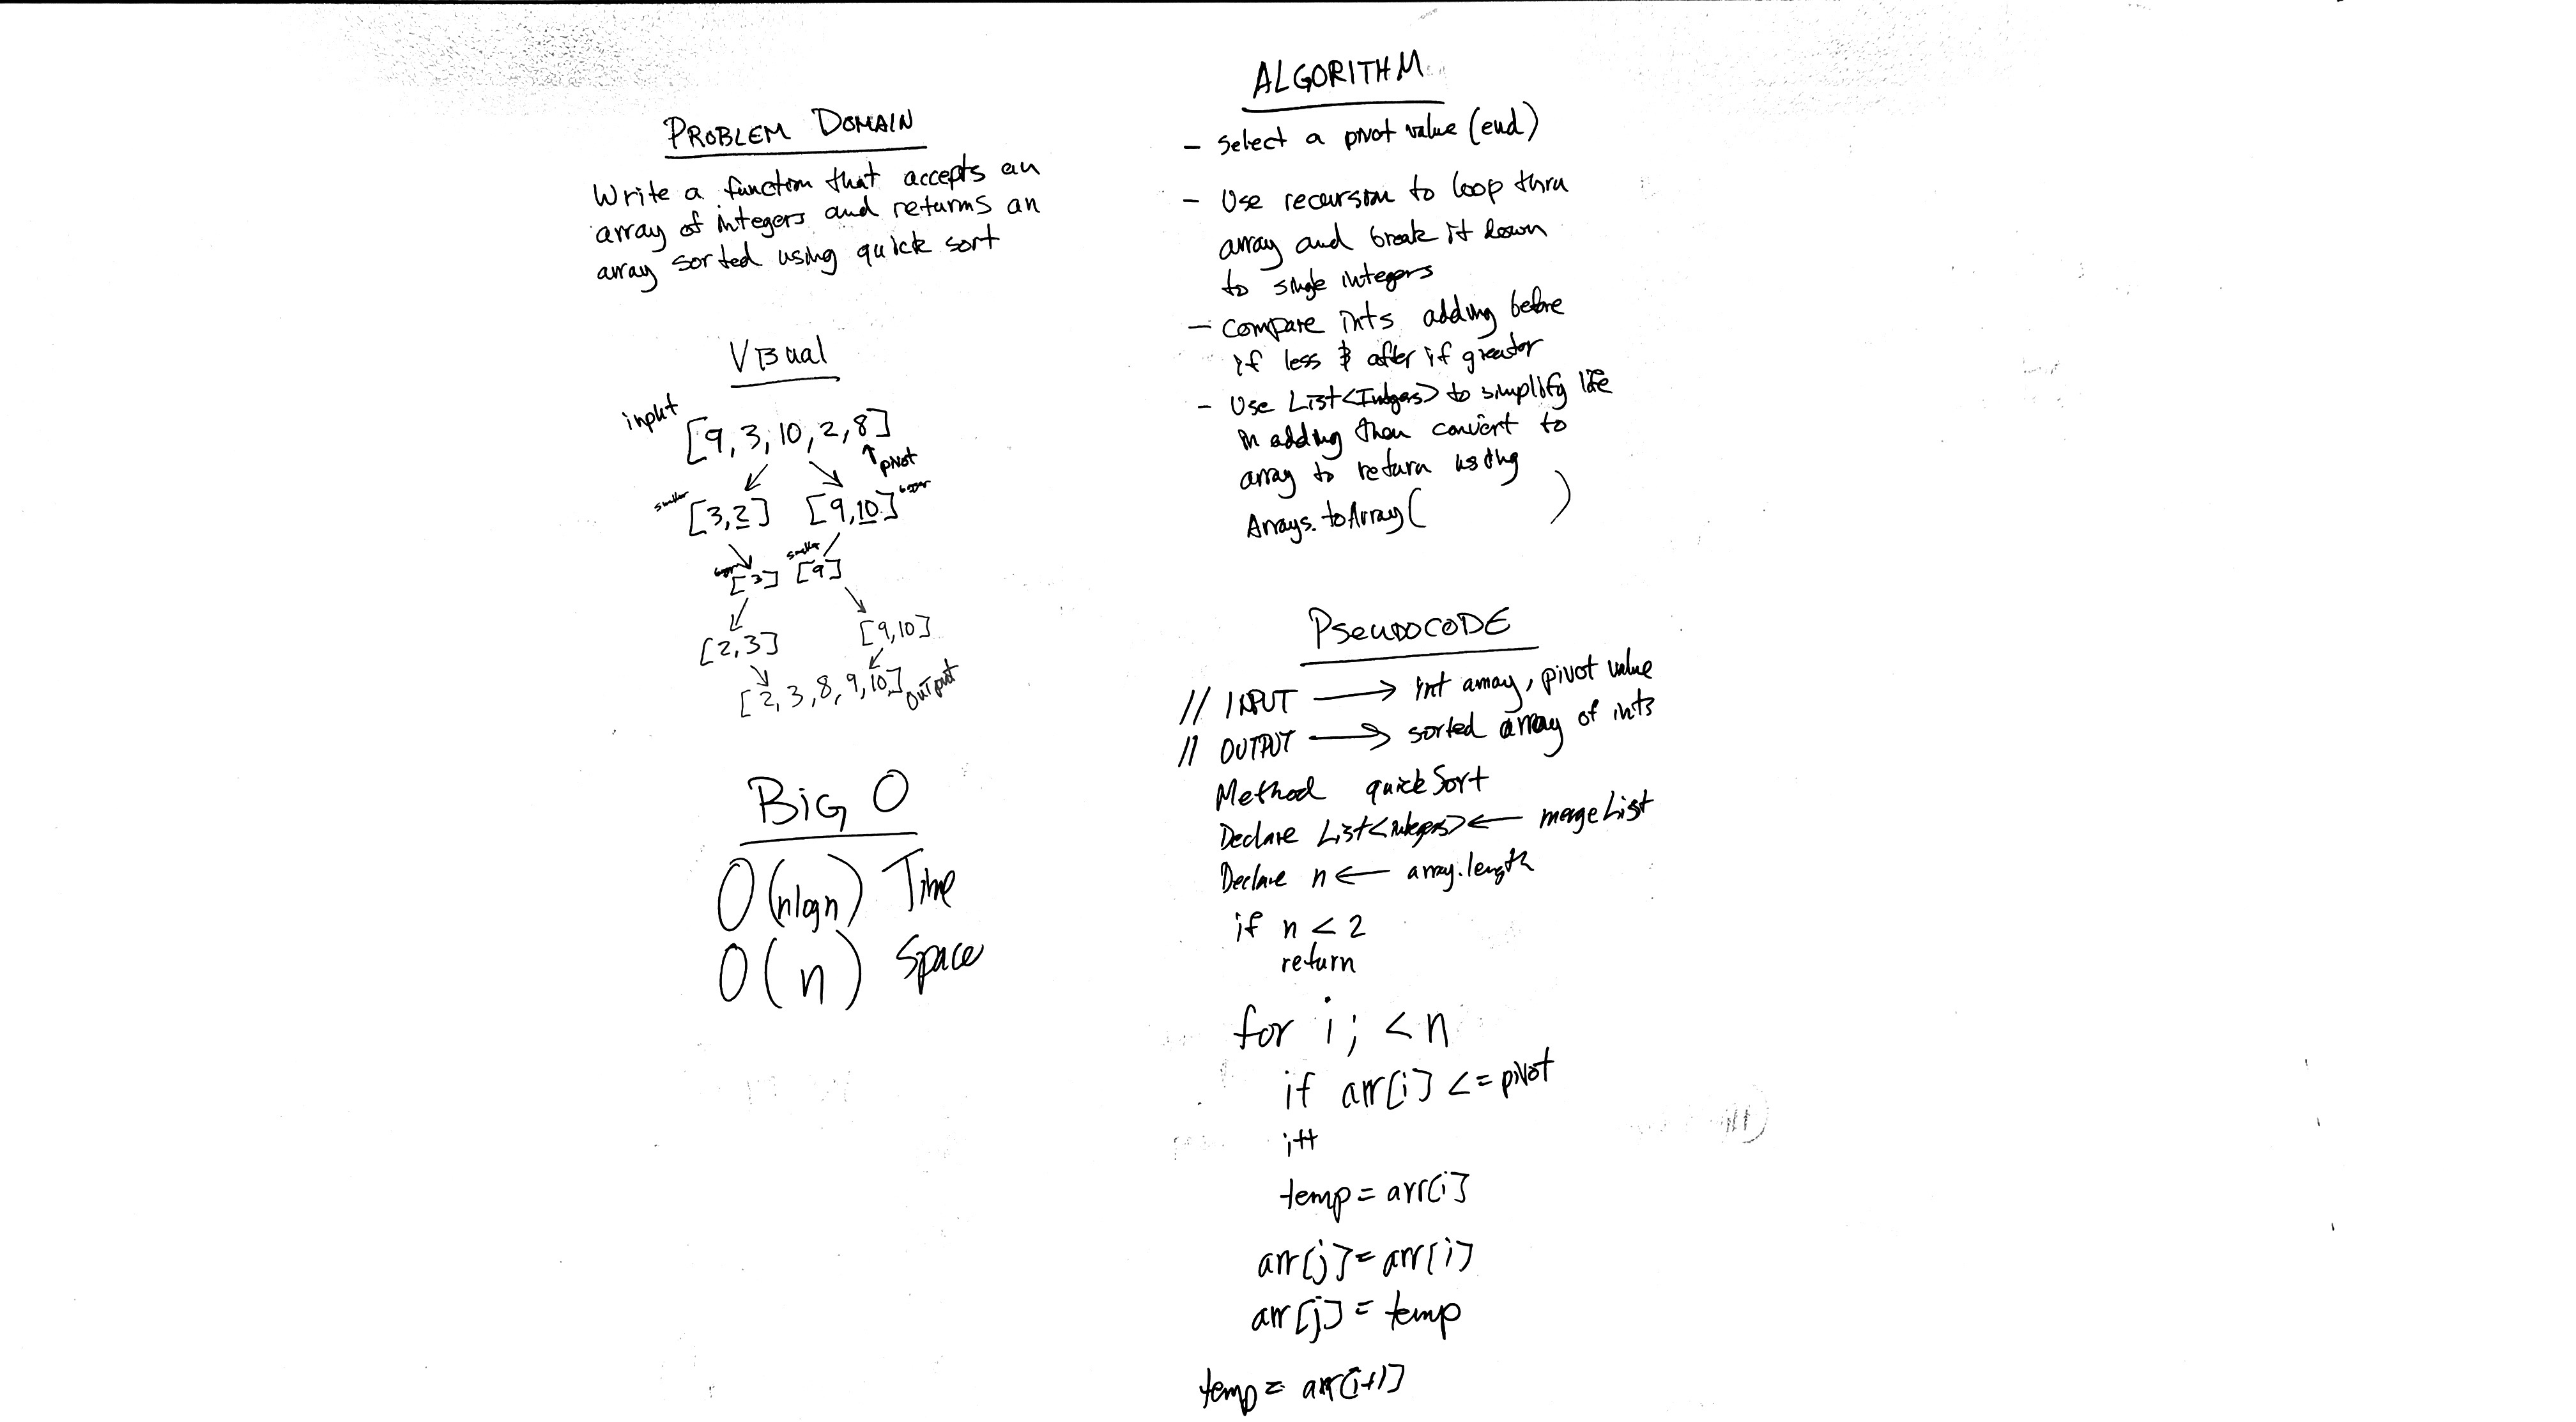 PROBLEM DOMAIN
Write a function that accepts an
array of integers and returns an
array sorted using quick sort
Visual
input
[9, 3, 10, 2, 8]
pivot
smaller [3, 2] [9, 10] bigger
smaller
bigger [3] [9]
[2, 3] [9, 10]
[2, 3, 8, 9, 10] output
BIG O
O(nlogn) Time
O(n) Space
ALGORITHM
- Select a pivot value (end)
- Use recursion to loop thru
array and break it down
to single integers
- compare ints adding before
if less & after if greater
- Use List<Integers> to simplify life
in adding then convert to
array to return using
Arrays.toArray( )
PSEUDOCODE
// INPUT → int array, pivot value
// OUTPUT → sorted array of ints
Method quickSort
Declare List<integers> ← mergeList
Declare n ← array.length
if n < 2
return
for i; < n
if arr[i] <= pivot
i++
temp = arr[i]
arr[j] = arr[i]
arr[j] = temp
temp = arr[i+1]